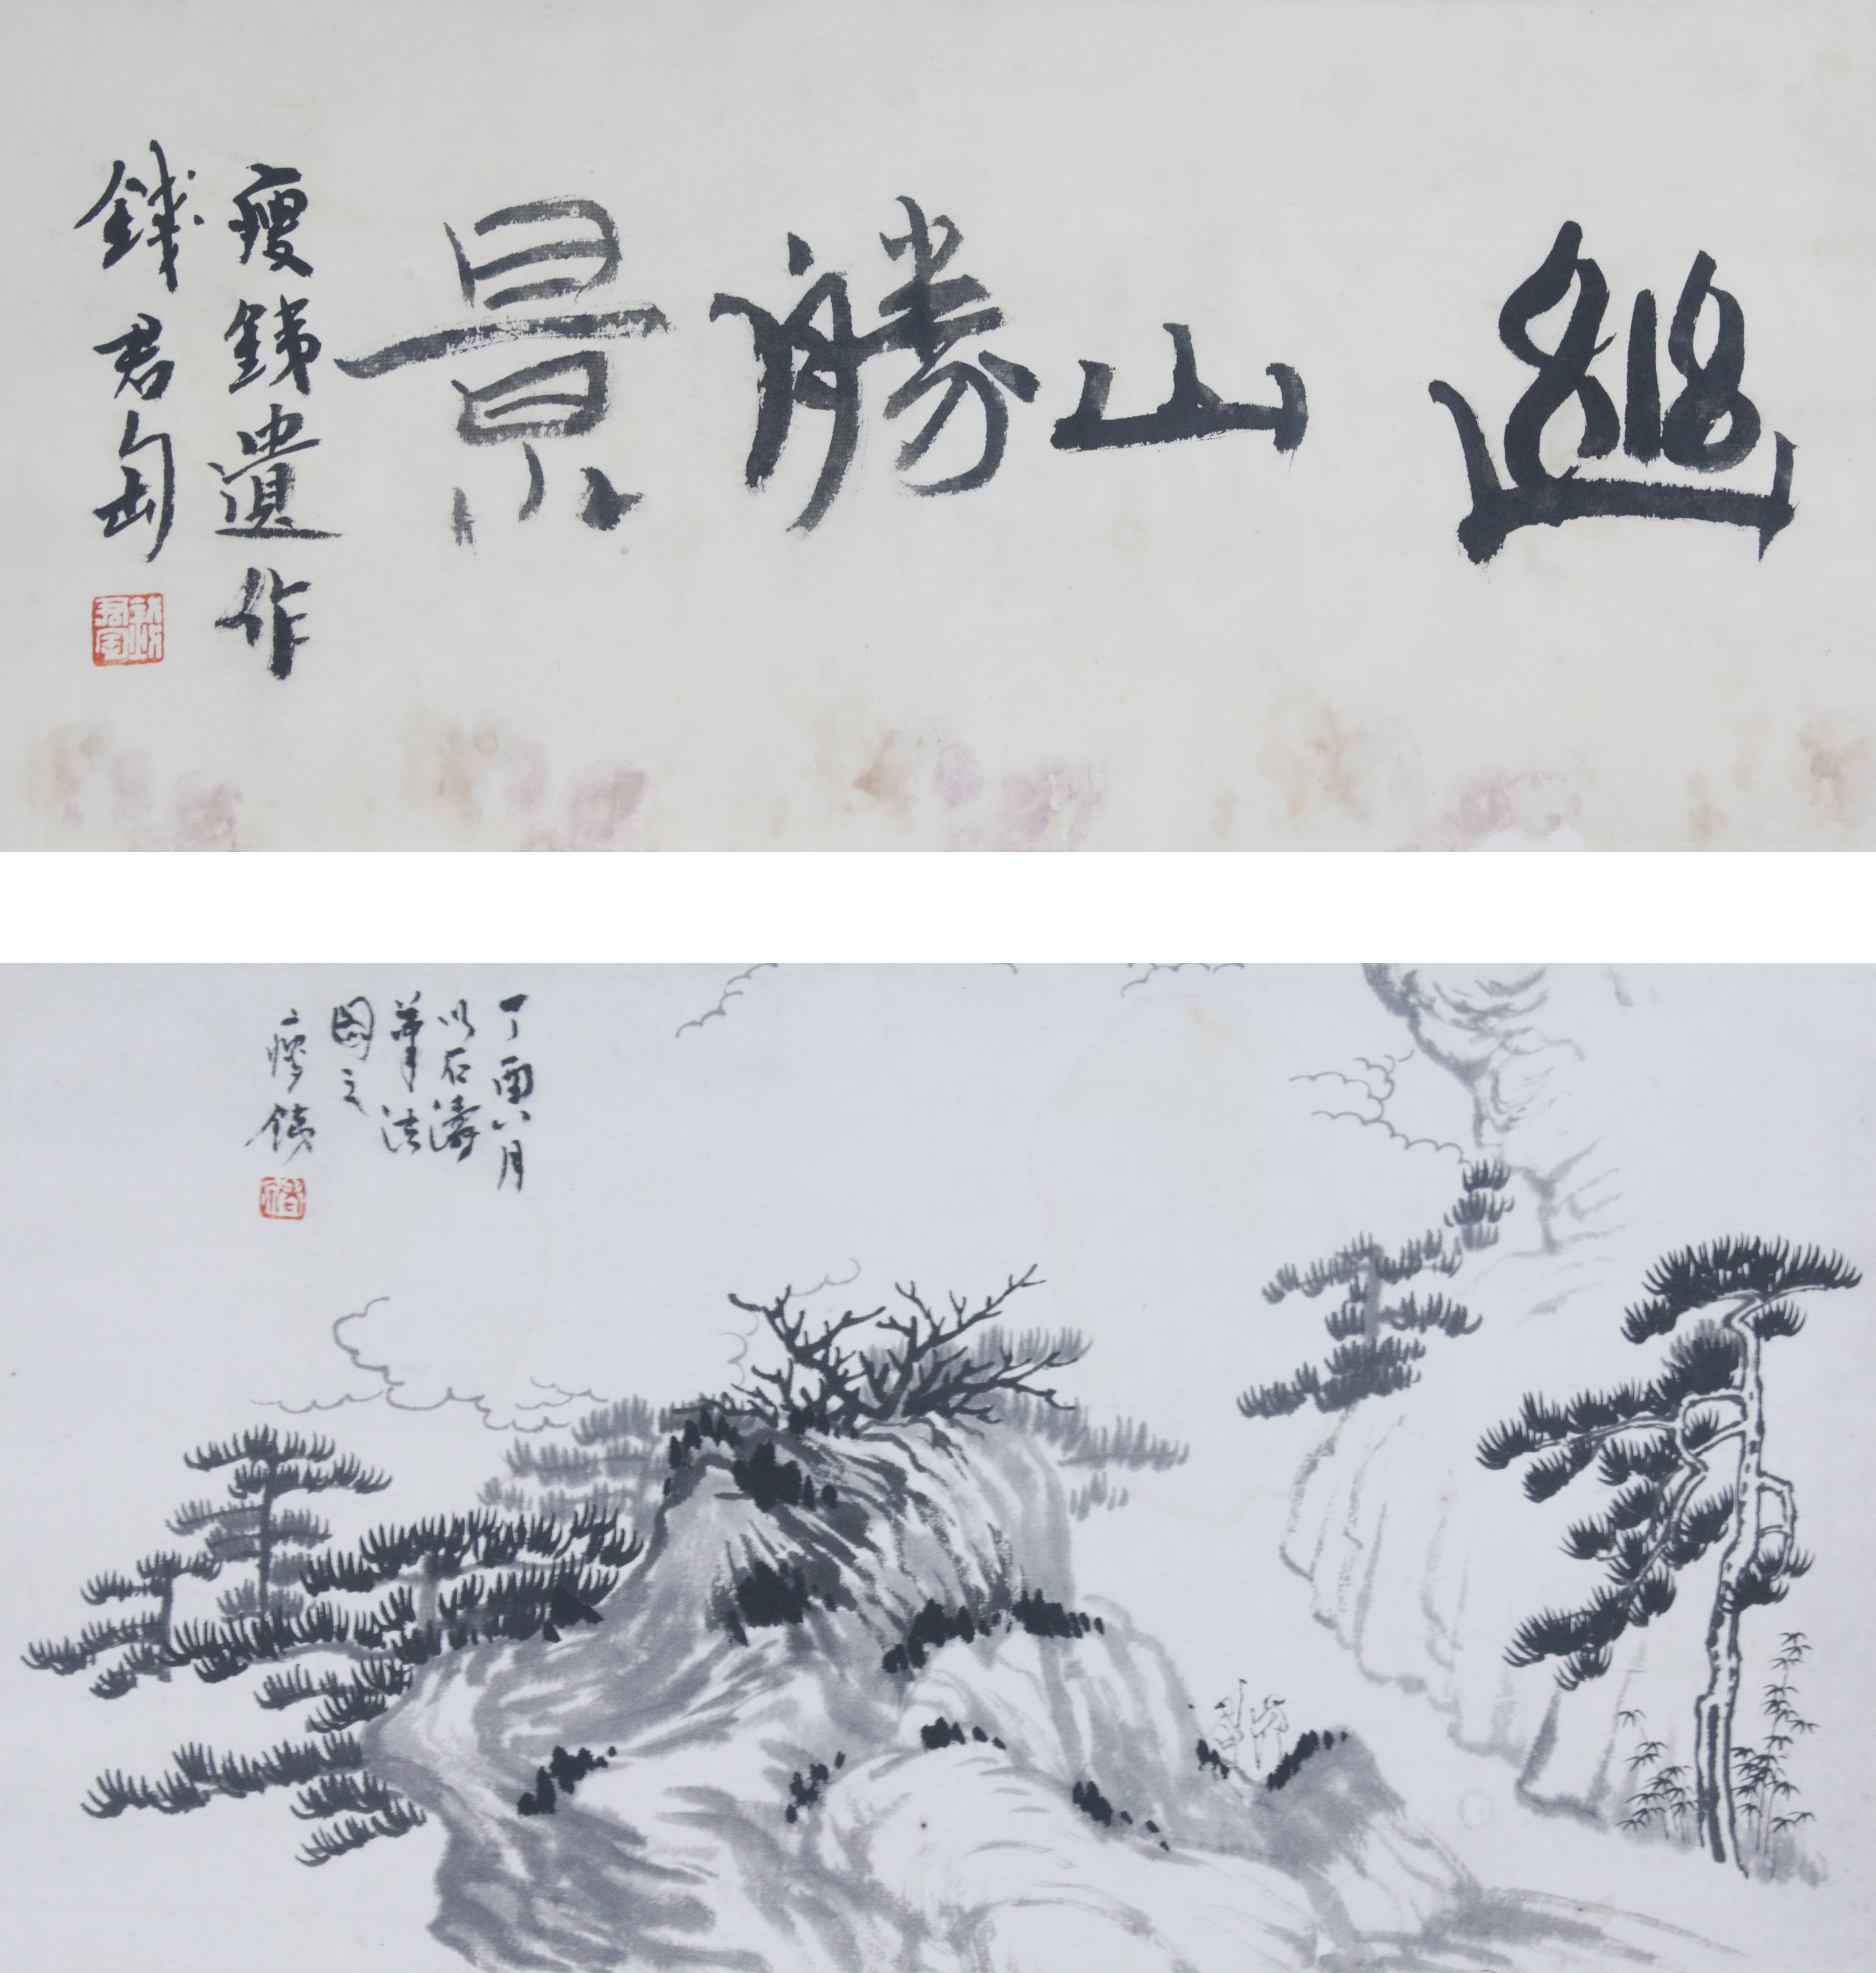 幽山勝景
瘦鐵遺作
錢君匋
丁酉八月
以石濤
筆法
圖之
瘦鐵